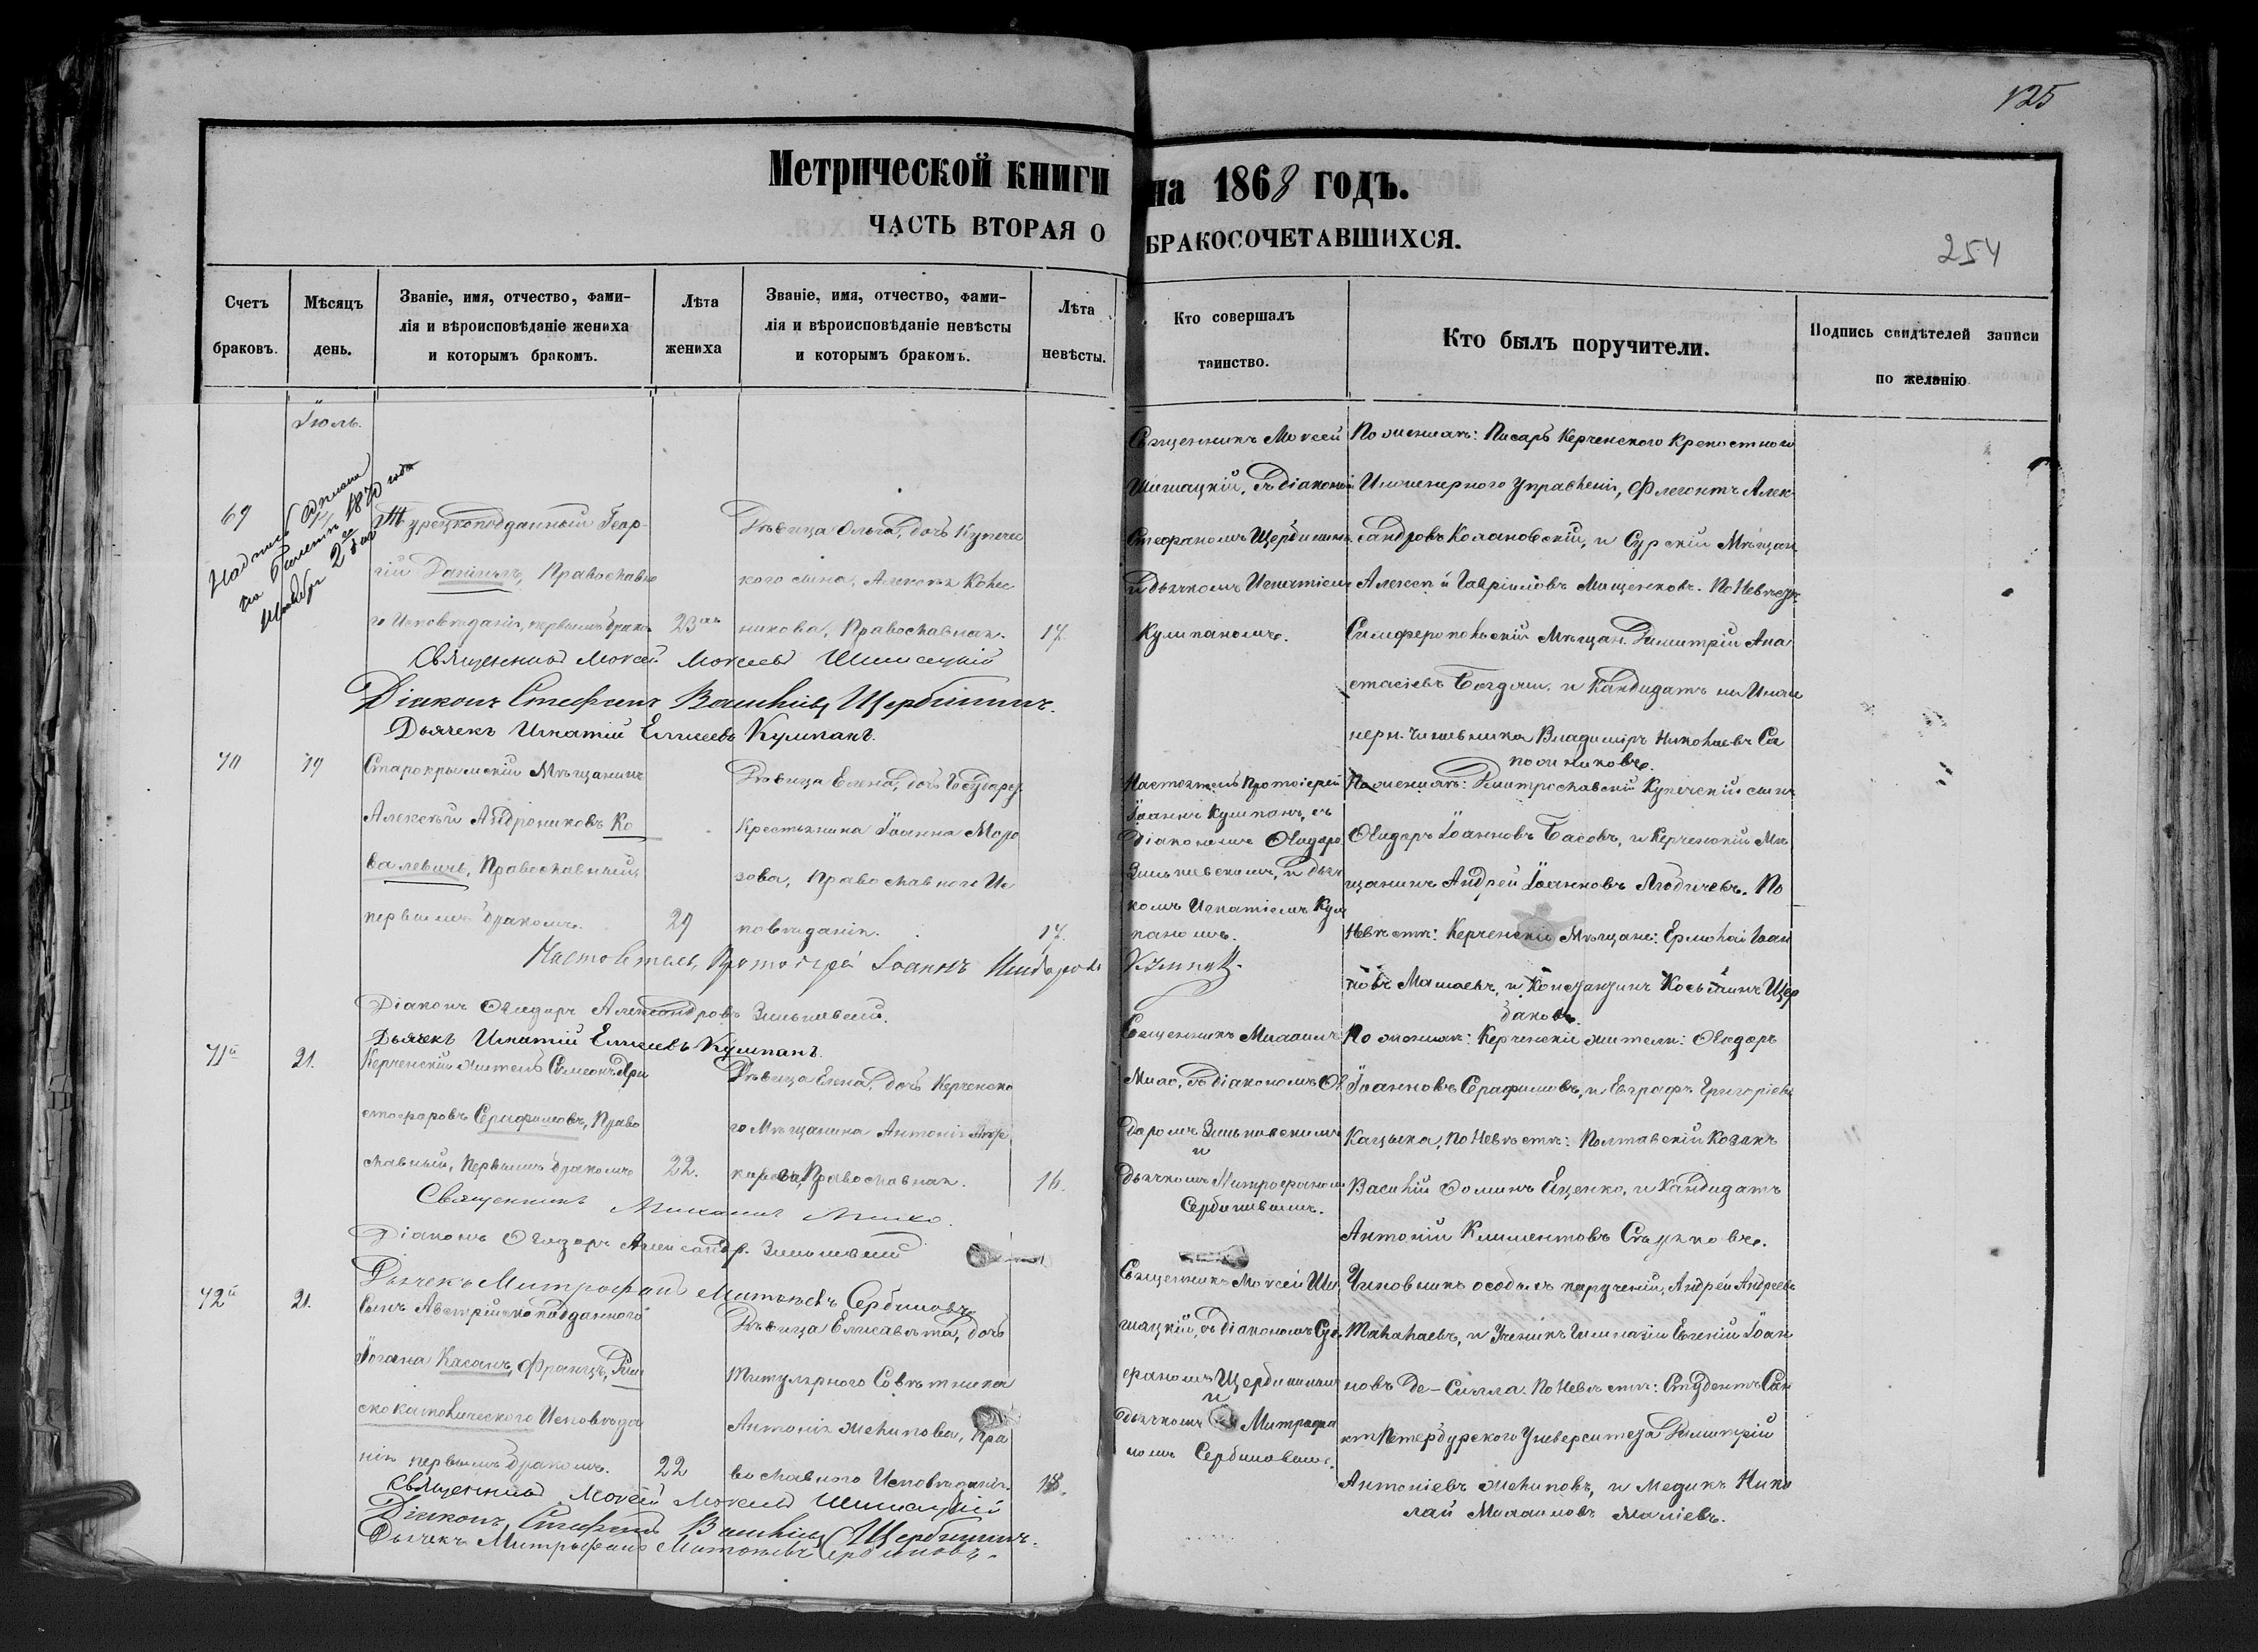 125
Метрической книги на 1868 годъ.
ЧАСТЬ ВТОРАЯ О БРАКОСОЧЕТАВШИХСЯ.
254
Счетъ браковъ.
Мѣсяцъ день.
Званіе, имя, отчество, фами-
лія и вѣроисповѣданіе жениха
и которымъ бракомъ.
Лѣта жениха
Званіе, имя, отчество, фами-
лія и вѣроисповѣданіе невѣсты
и которымъ бракомъ.
Лѣта невѣсты.
Кто совершалъ
таинство.
Кто былъ поручители.
Подпись свидѣтелей записи
по желанію
Іюль.
69
1870 года
Турецкоподданный Геор-
гій Данiилъ, Православна
го Исповѣданія, первымъ брако
23
Дѣвица Ольга, дочь Купечес
кого сына, Алексѣя Колес
никова, Православная.
17.
Священникъ Моѵсей Шишацкій, съ діакономъ
Стефаномъ Щербининъ
и дьячкомъ Игнатіемъ
Кулипаномъ.
По женихѣ: Писарь Керченского Крепостного
Инженерного Управленія, Флегонтъ Алек
сандровъ Колановскій, и Сурскій Мѣщан
Алексѣй Гавріиловъ Мищенковъ. По Невѣстѣ
Симферопольскій Мѣщан. Димитрій Ана
стасіевъ Богдан. и Кандидатъ на
Владиміръ Николаевъ Са
Священникъ Моѵсей Моѵсеевъ Шишацкій
Діаконъ Стефанъ Васильевъ Щербининъ.
Дьячекъ Игнатій Елисеевъ Кулипанъ.
70
19
Старокрымскій Мѣщанинъ
Алексѣй Андрониковъ Ко
валевичъ, Православный,
первымъ бракомъ.
29
Дѣвица Елена, дочь Государ.
Крестьянина Іоанна Моро
зова, Православного Ис
повѣданія.
17.
Настоятель Протоіерей
Іоаннъ Кулипанъ, съ
Діакономъ Ѳеодоро
Зиньковскимъ, и дьяч
комъ Игнатіемъ Кули
паномъ.
По женихѣ: Купеческій сынъ
Ѳеодоръ Іоанновъ Басовъ, и Керченскій Мѣ
щанинъ Андрей Іоанновъ Люднчевъ. По
Невѣстѣ: Керченскіе Мѣщане: Ермолай Іоан
новъ Машаевъ, и Константинъ Косьминъ Щер
баковъ.
Настоятель, Протоіерей Іоаннъ
Діаконъ Ѳеодоръ Александровъ Зиньковскій.
Дьячекъ Игнатій Елисеевъ Кулипанъ.
71й
21.
Керченскій житель Симеонъ Хри
стофоровъ Серафимовъ, Право
славный, Первымъ бракомъ
22.
Дѣвица Елена, дочь Керченско
го Мѣщанина Антонія
Православная.
16.
Священникъ Михаилъ
съ діакономъ Ѳео
доромъ Зиньковскимъ
и
дьячкомъ Митрофаном
Сербиновымъ.
По женихѣ: Керченскіе жители: Ѳеодоръ
Іоанновъ Серафимовъ, и Евграфъ Григоріевъ
Кацыка, По Невѣстѣ: Полтавскій Козакъ
Василій Ѳоминъ Яценко, и Кандидатъ
Антоній Климентовъ
Священникъ Михаилъ
Діаконъ Ѳеодоръ Александр. Зиньковскій
Дьячекъ Митрофанъ Матвѣевъ Сербиновъ
72й
21.
Сынъ Австрійскоподданного
Іогана Касанъ, Францъ, Рим
скокатолического Исповѣда
нія первымъ бракомъ.
22
Дѣвица Елисавета, дочь
Титулярного Совѣтника
Антонія Желипова, Пра
вославного Исповѣданія.
18.
Священникъ Моѵсей Ши
шацкій, съ діакономъ Сте
фаномъ Щербининым
и
дьячкомъ Митрофа
номъ Сербиновым.
Чиновникъ особыхъ порученій, Андрей Андреевъ
Талалаевъ, и Ученикъ Гимназіи Евгеній Іоан
новъ Де-Силла. По Невѣстѣ: Студентъ Сан
ктПетербургского Университета Димитрій
Антоніевъ Желиповъ, и Медикъ Нико
лай Михаиловъ Маліевъ.
Священникъ Моѵсей Моѵсеевъ Шишацкій
Діаконъ Стефанъ Васильевъ Щербининъ.
Дьячекъ Митрофанъ Матвѣевъ Сербиновъ.